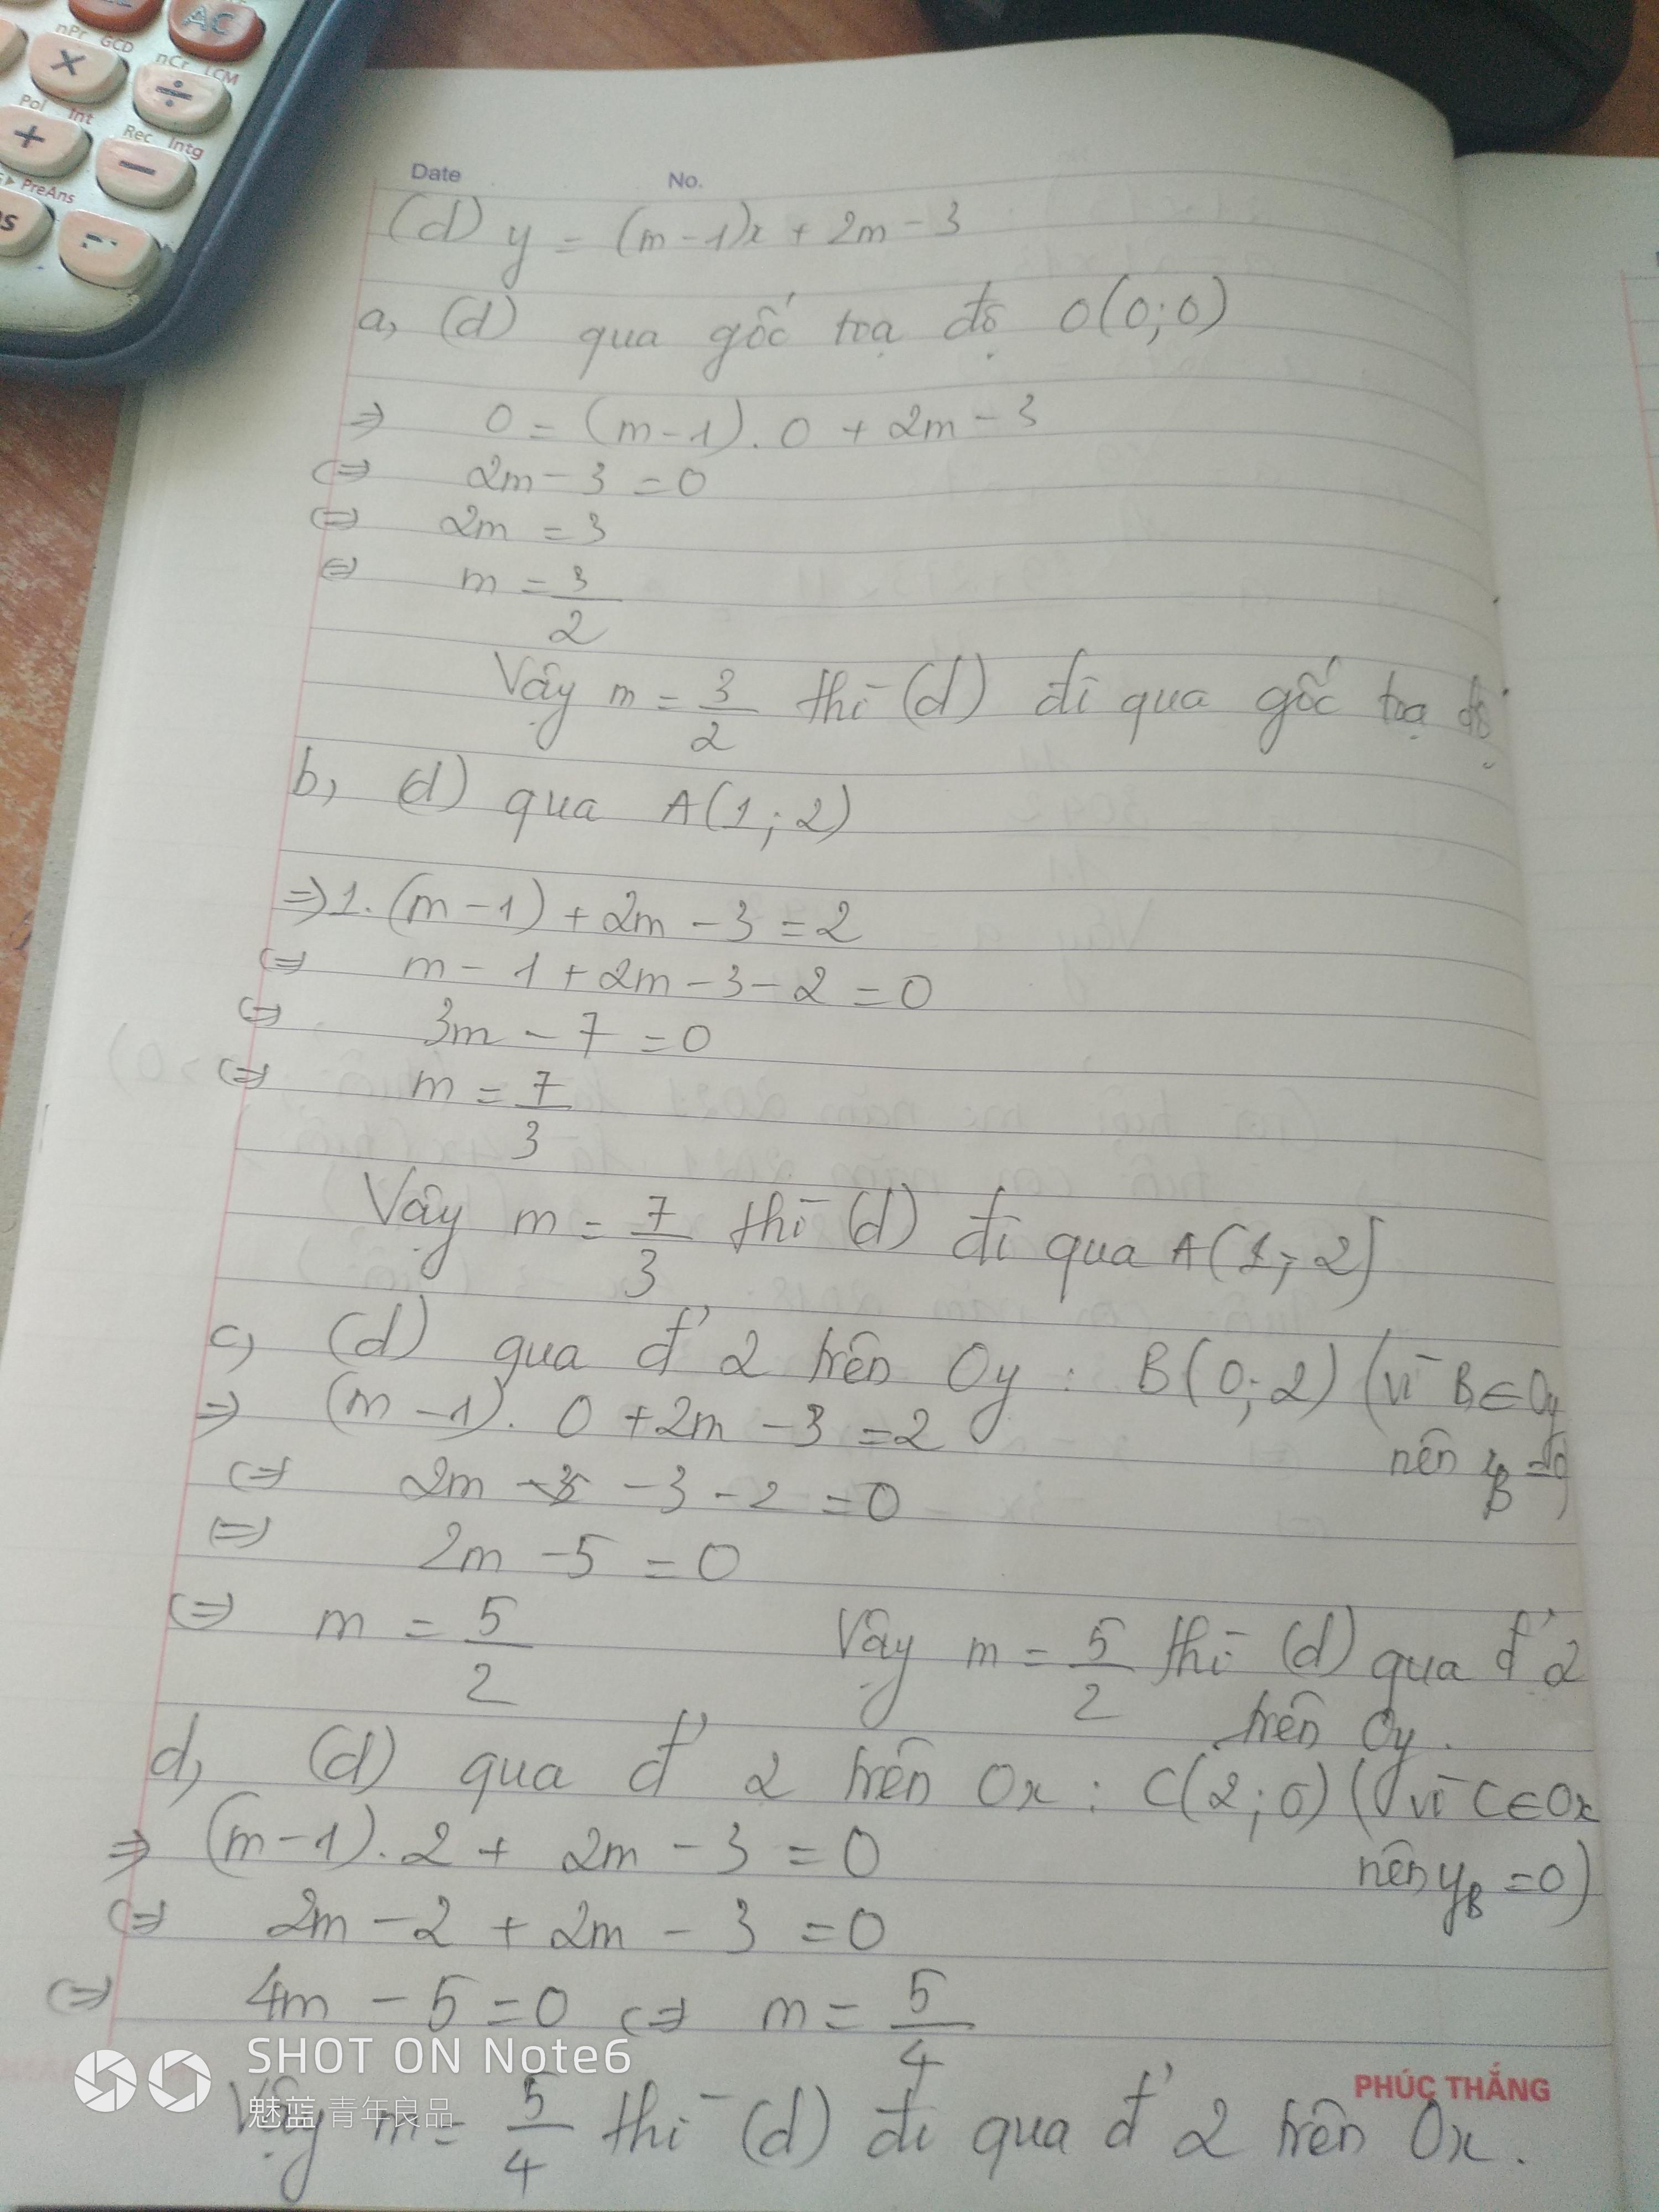 AC
nPr GCD
×
nCr LCM
÷
Pol Int
+
Rec Intg
−
PreAns
Date No.
(d) y = (m-1)x + 2m - 3
a, (d) qua gốc toạ độ O(0;0)
⇒ 0 = (m-1).0 + 2m - 3
⇔ 2m - 3 = 0
⇔ 2m = 3
⇔ m = 3/2
Vậy m = 3/2 thì (d) đi qua gốc toạ độ
b, (d) qua A(1;2)
⇒ 1.(m-1) + 2m - 3 = 2
⇔ m - 1 + 2m - 3 - 2 = 0
⇔ 3m - 7 = 0
⇔ m = 7/3
Vậy m = 7/3 thì (d) đi qua A(1;2)
c, (d) qua đ' 2 trên Oy : B(0;2) (vì B∈Oy
nên
⇒ (m-1).0 + 2m - 3 = 2
⇔ 2m - 3 - 2 = 0
⇔ 2m - 5 = 0
⇔ m = 5/2 Vậy m = 5/2 thì (d) qua đ' 2
trên Oy.
d, (d) qua đ' 2 trên Ox : C(2;0) (vì C∈Ox
nên yB = 0)
⇒ (m-1).2 + 2m - 3 = 0
⇔ 2m - 2 + 2m - 3 = 0
⇔ 4m - 5 = 0 ⇔ m = 5/4
Vậy m = 5/4 thì (d) đi qua đ' 2 trên Ox.
PHÚC THẮNG
SHOT ON Note6
魅蓝 青年良品